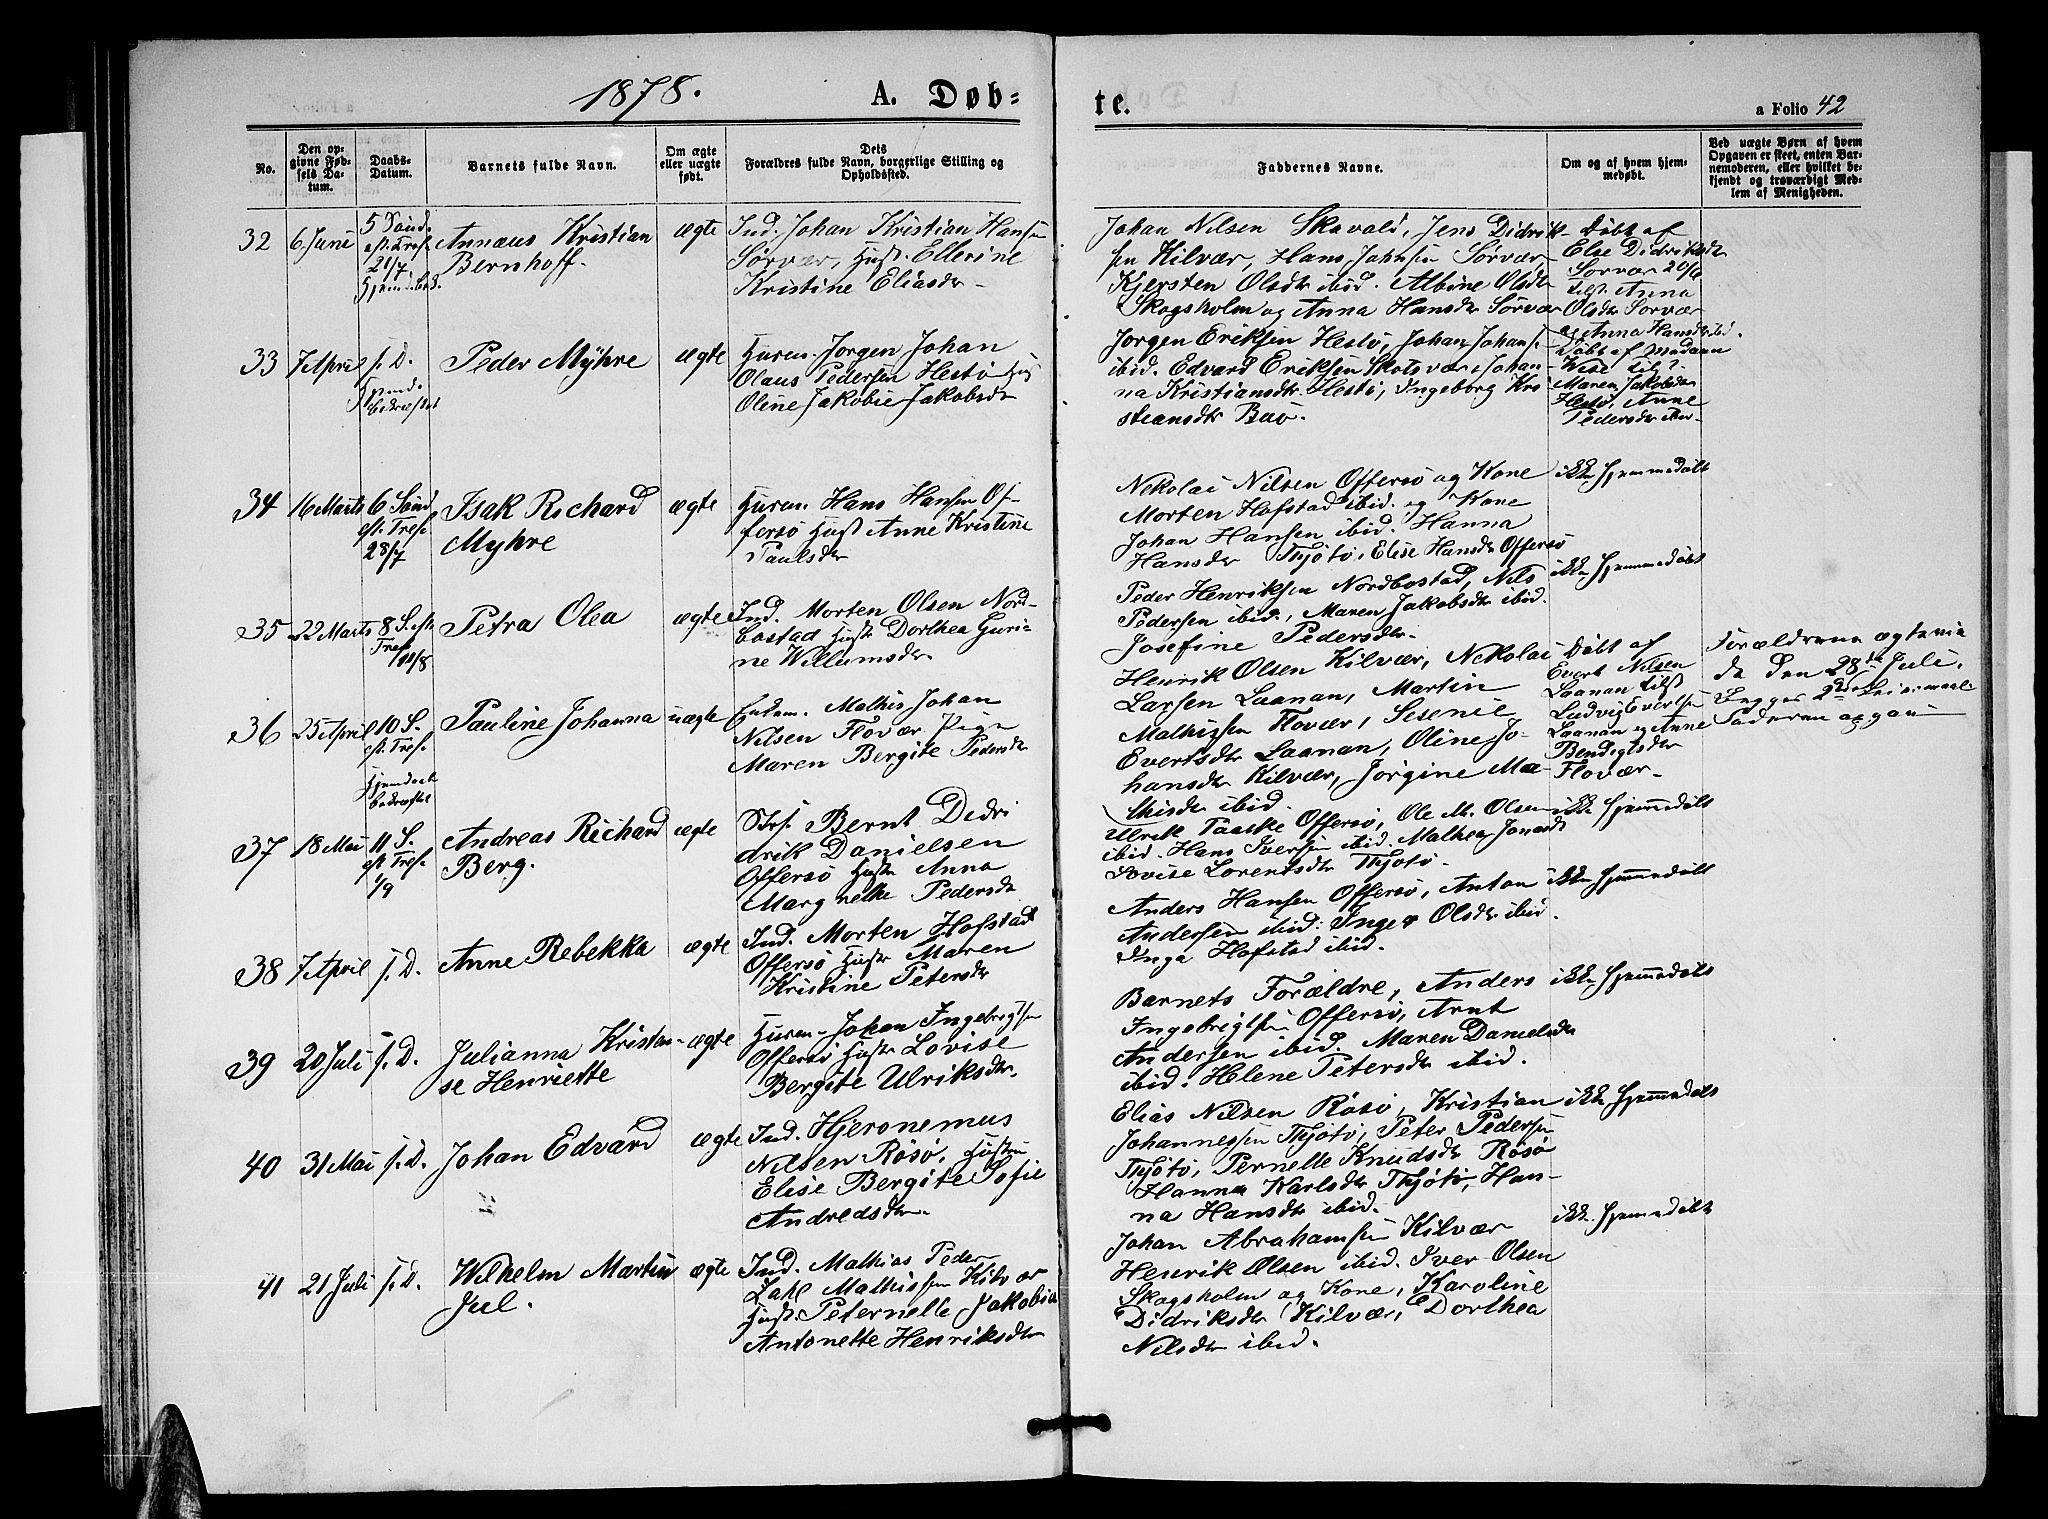 1878.
A. Døb-
te.
a Folio 42
No.
Den op-
givne Fød-
sels Da-
tum.
Daabs-
Datum.
Barnets fulde Navn.
Om ægte
eller uægte
født.
Dets
Forældres fulde Navn, borgerlige Stilling og
Opholdssted.
Faddernes Navne.
Om og af hvem hjem-
medøbt.
Ved uægte Børn af hvem
Opgaven er skeet, enten Bar-
nemoderen, eller hvilket be-
kjendt og troværdigt Med-
lem af Menigheden.
32
6 Juni
5 Sønd.
eft. Tref.
21/7
Annæus Kristian
Bernhoff.
ægte
Ind. Johan Kristian Hansen
Sørvær, Hust. Ellerine
Kristine Eliasdr
Johan Nilsen Skavalö, Jens Didrik-
sen Kilvær, Hans Johnsen Sørvær
Kjersten Olsdr ibid. Albine Olsdr
Skogsholm og Anna Hansdr Sørvær
Døbt af
Else Didriksdr
Sørvær 20/6
tilst. Anna
Olsdr Sørvær
og Anna Hansdr ibid.
33
7 April
s. D.
Peder Myhre
ægte
Husm. Jørgen Johan
Olaus Pedersen Hestö Hust
Oline Jakobie Jakobsdr
Jorgen Eriksen Hestö, Johan Johans
ibid. Edvard Eriksen Skotsvær, Johan-
na Kristiansdr. Hestö, Ingeborg Kri
steansdr Buö.
Døbt af Madam
Wise tilst
Maren Jakobsdr
Hestö, Anne
Pedersdr
34
16 Marts
6 Sønd
eft. Tref.
28/7
Isak Richard
Myhre
ægte
Husm. Hans Hansen Of-
fersö Hust Anne Kristine
Paulsdr
Nekolai Nilsen Offersö og Kone
Morten Hofstad ibid. og Kone
Johan Hansen ibid. Hanna
Hansdr Thjötö, Elise Hansdr Offersö
ikke hjemmedøbt
35
22 Marts
8 S. eft.
Tref.
11/8
Petra Olea
ægte
Ind. Morten Olsen Nord-
bostad Hustr Dorthea Guri-
ne Willumsdr
Peder Henriksen Nordbostad, Nils
Pedersen ibid., Maren Jakobsdr ibid.
Josefine Pedersdr
ikke hjemmedøbt
36
25 April
10 S.
eft. Tref.
Hjemdaab
bekræftet
Pauline Johanna
uægte
Enkem. Mathis Johan
Nilsen Flovær Pige
Maren Bergite Pedersdr
Henrik Olsen Kilvær, Nekolai
Larsen Laanan, Martin
Mathissen Flovær, Sesenie
Evertsdr Laanan, Oline Jo-
hansdr Kilvær, Jörgine Ma-
thisdr ibid.
Døbt af
Evert Nilsen
Laanan tilst
Ludvig Evertsen
Laanan og Anne
Bendigtsdr
Flovær
Forældrene ægtevie
de den 28de Juli.
Begges 2det Leiermaal
Faderen opgav
37
18 Mai
11 S.
eft. Tref.
1/9
Andreas Richard
Berg.
ægte
Bernt Dedri
drik Danielsen
Offersö Hustr Anna
Margrethe Pedersdr
Ulrik Taaske Offersö, Ole M. Olsen
ibid. Hans Iversen ibid. Mathea Jonasdr
Lovise Lorentsdr Thjötö.
ikke hjemmedøbt
38
7 April
s. D.
Anne Rebekka
ægte
Ind. Morten Hofstad
Offersö Hustr Maren
Kristine Petersdr
Anders Hansen Offersö, Anton
Andersen ibid. Inger Olsdr ibid.
Inga Hofstad ibid.
ikke hjemmedøbt
39
20 Juli
s. D.
Julianna Kristan-
se Henriette
ægte
Husm. Johan Ingebrigtsen
Offersö Hustr Lovise
Bergite Ulriksdr.
Barnets Forældre, Anders
Ingebrigtsen Offersö, Arnt
Andersen ibid. Maren Danielsdr
ibid. Helene Petersdr ibid.
ikke hjemmedøbt
40
31 Mai
s. D.
Johan Edvard
ægte
Ind. Hjeronemus
Nilsen Rösö, Hustru
Elise Bergite Sofie
Andredsdr.
Elias Nilsen Rösö, Kristian
Johannessen Thjötö, Peter Pedersen
Thjötö, Pernelle Knudsdr Rösö
Hanna Karlsdr Thjötö, Han-
na Hansdr ibid.
ikke hjemmedøbt
41
21 Juli
s. D.
Wilhelm Martin
Jul.
ægte
Ind. Mathias Peder
Zahl Mathissen Kilvær
Hust. Peternelle Jakobia
Antonette Henriksdr
Johan Abrahamsen Kilvær
Henrik Olsen ibid. Iver Olsen
Skogsholm og Kone, Karoline
Didriksdr Kilvær, Dorthea
Nilsdr ibid.
ikke hjemmedøbt